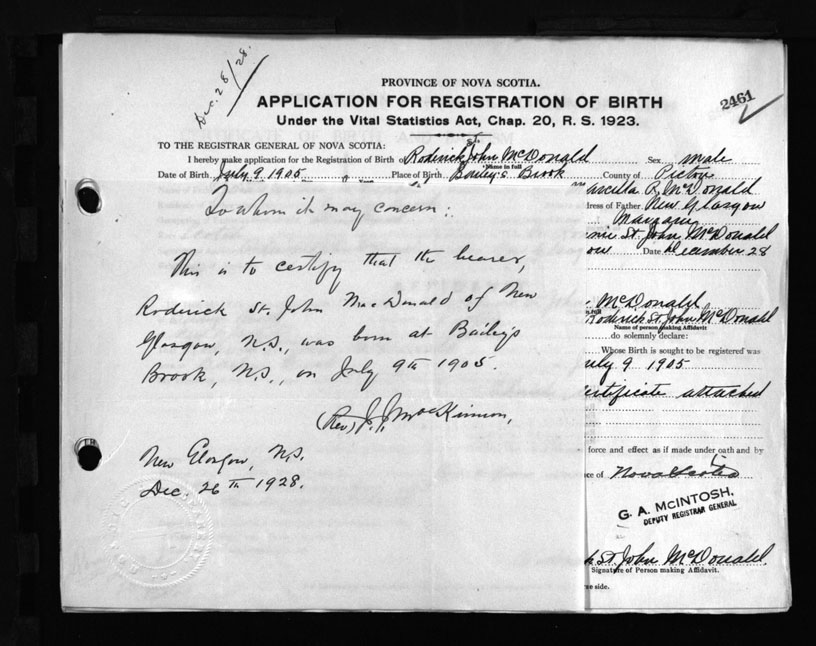 Dec. 28/28.
PROVINCE OF NOVA SCOTIA.
APPLICATION FOR REGISTRATION OF BIRTH
Under the Vital Statistics Act, Chap. 20, R. S. 1923.
2461
TO THE REGISTRAR GENERAL OF NOVA SCOTIA:
I hereby make application for the Registration of Birth of Roderick St. John McDonald Sex male
Name in full
Date of Birth July 9 1905 Place of Birth Bailey's Brook County of Pictou
McDonald
dress of Father New Glasgow
Margaret
St. John McDonald
ow Date December 28
To whom it may concern:
This is to certify that the bearer,
Roderick St. John MacDonald of New
Glasgow, N.S., was born at Bailey's
Brook, N.S., on July 9th 1905.
(Rev) J. J. MacKinnon,
New Glasgow, N.S.
Dec. 26th 1928.
McDonald
Roderick St. John McDonald
Name of person making Affidavit
do solemnly declare:
Whose Birth is sought to be registered was
July 9 1905
certificate attached
force and effect as if made under oath and by
ce of Nova Scotia
G. A. McINTOSH,
DEPUTY REGISTRAR GENERAL
k St. John McDonald.
Signature of Person making Affidavit.
se side.